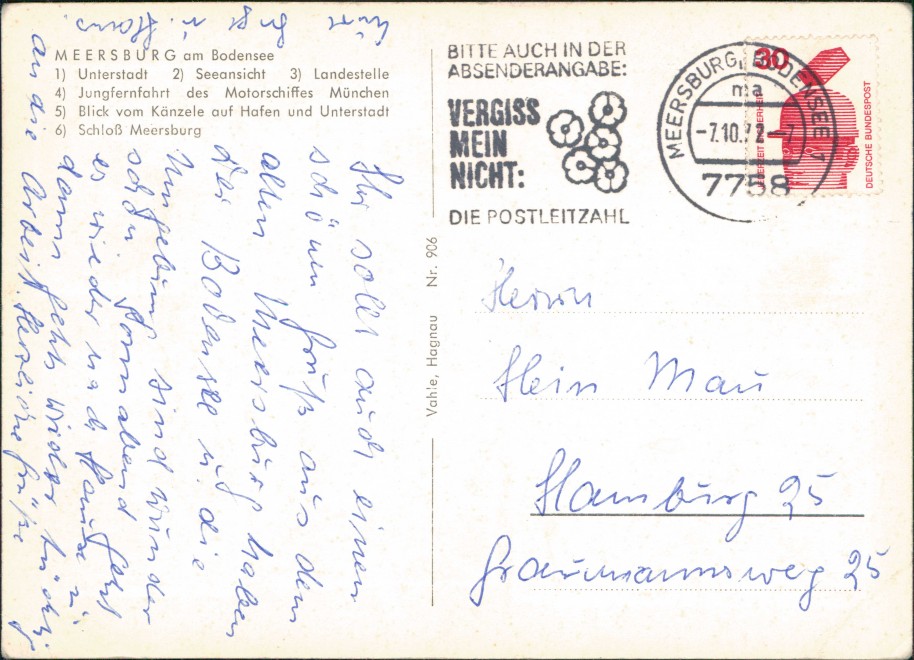 MEERSBURG am Bodensee
1) Unterstadt 2) Seeansicht 3) Landestelle
4) Jungfernfahrt des Motorschiffes München
5) Blick vom Känzele auf Hafen und Unterstadt
6) Schloß Meersburg
Ihr sollt auch einen
schönen Gruß aus dem
alten Meersburg haben
Der Bodensee u. die
Umgebung sind wunder
schön Sonnabend geht
es wieder nach Hause u.
dann geht wieder tüchtig
an die Arbeit. Herzliche Grüße
u. Hans
Vahle, Hagnau Nr. 906
BITTE AUCH IN DER
ABSENDERANGABE:
VERGISS
MEIN
NICHT:
DIE POSTLEITZAHL
MEERSBURG, BODENSEE 1
ma
-7.10.72-7
7758
30
DEUTSCHE BUNDESPOST
Herrn
Hein Mau
Hamburg 25
Graumannsweg 25